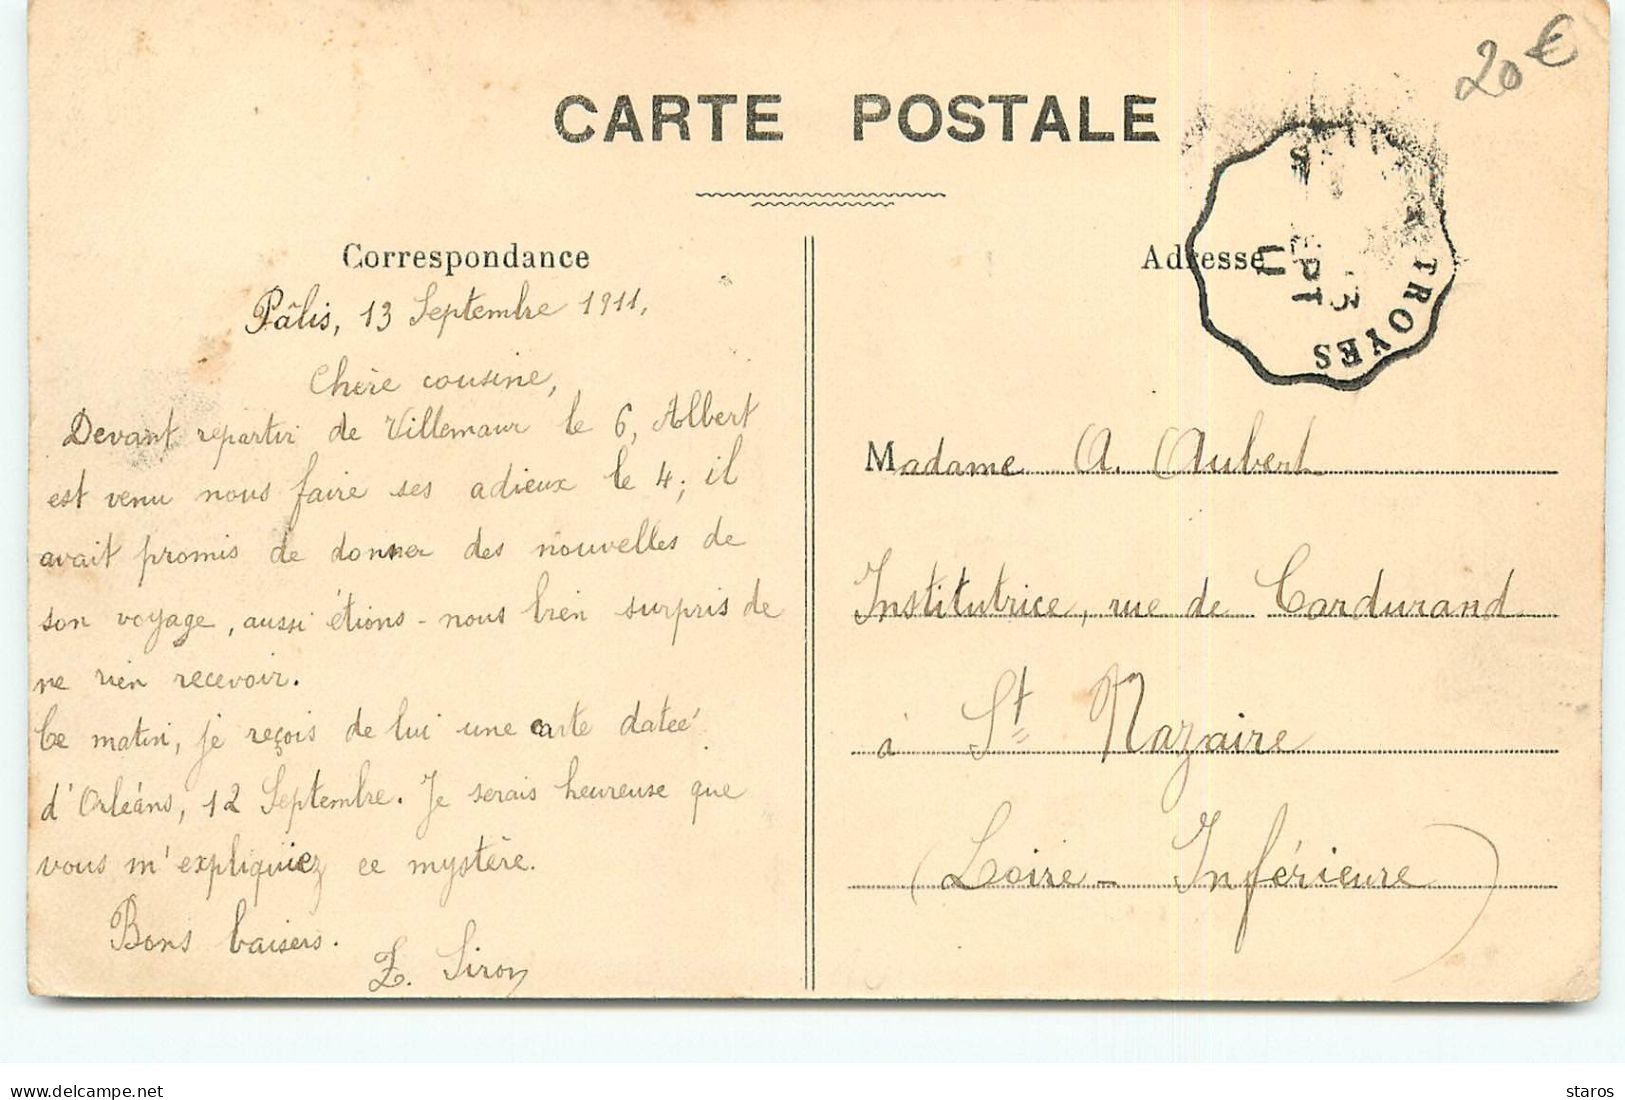 20€
CARTE POSTALE
Correspondance
Pâlis, 13 Septembre 1911,
Chère cousine,
Devant repartir de Villemaur le 6, Albert
est venu nous faire ses adieux le 4; il
avait promis de donner des nouvelles de
son voyage, aussi étions-nous bien surpris de
ne rien recevoir.
Ce matin, je reçois de lui une carte datée
d'Orléans, 12 Septembre. Je serais heureuse que
vous m'expliquiez ce mystère.
Bons baisers.
Z. Siron
Adresse
TROYES
13
SEPT
11
Madame A. Aubert
Institutrice, rue de Cardurand
à St Nazaire
(Loire-Inférieure)
www.delcampe.net
staros